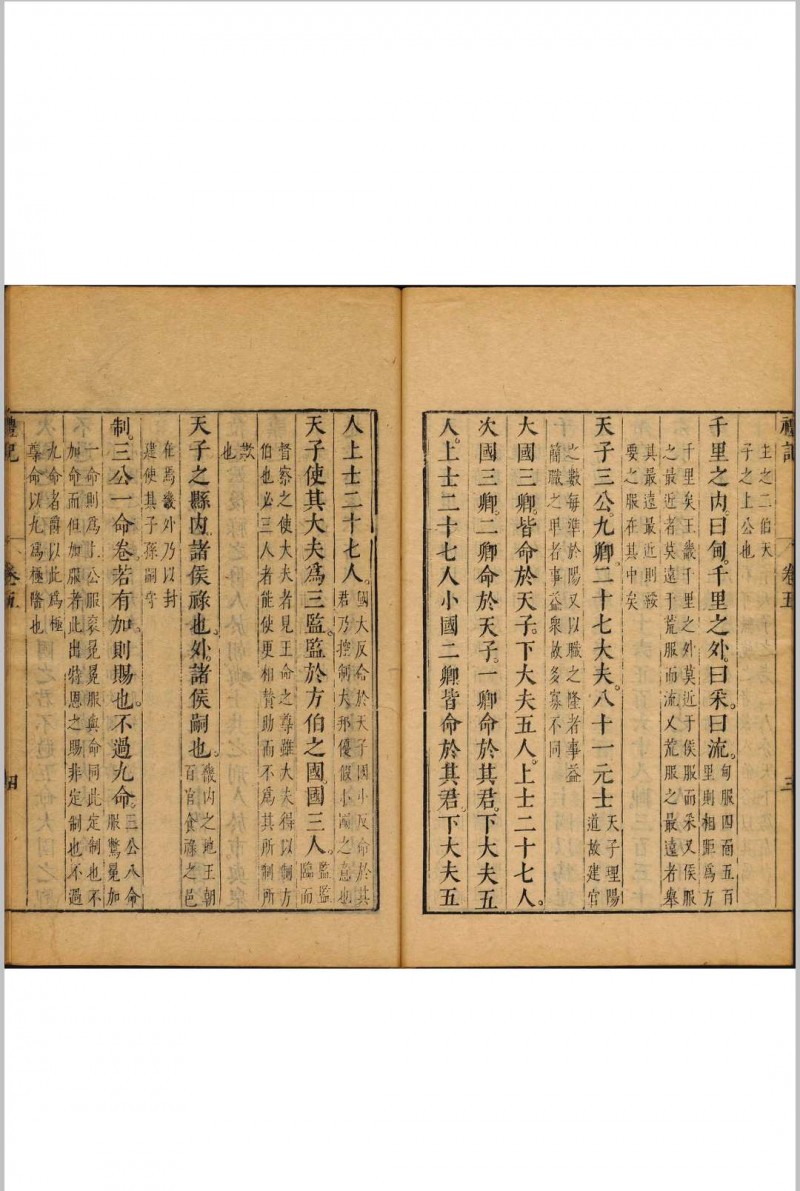 禮記 卷五 三
主之二伯天
子之上公也
千里之内曰甸千里之外曰采曰流甸服四面五百
里則相距爲方
千里矣王畿千里之外莫近于侯服而采又侯服
之最近者莫遠于荒服而流又荒服之最遠者舉
其最遠最近則綏
要之服在其中矣
天子三公九卿二十七大夫八十一元士天子理陽
道故建官
之數每準於陽又以職之隆者事益
簡職之卑者事益衆故多寡不同
大國三卿皆命於天子下大夫五人上士二十七人
次國三卿二卿命於天子一卿命於其君下大夫五
人上士二十七人小國二卿皆命於其君下大夫五
人上士二十七人國大反命於天子國小反命於其
君乃控制大邦優假小國之意也
天子使其大夫爲三監監於方伯之國國三人監監
臨而
督察之使大夫者見王命之尊雖大夫得以制方
伯也必三人者能使更相贊助而不爲其所制所
歟
也
天子之縣内諸侯祿也外諸侯嗣也畿内之地王朝
百官食祿之邑
在焉畿外乃以封
建使其子孫嗣守
制三公一命卷若有加則賜也不過九命三公八命
服鷩冕加
一命則爲上公服袞冕服與命同此定制也不
加命而但加服者此出特恩之賜非定制也不過
九命者爵以此爲極
尊命以九爲極隆也
禮記 卷五 四